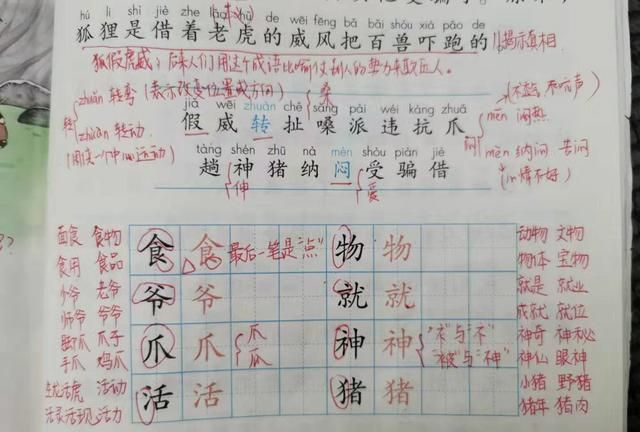 hú li shì jiè zhe lǎo hǔ de wēi fēng bǎ bǎi shòu xià pǎo de
狐狸是借着老虎的威风把百兽吓跑的。揭示真相
狐假虎威：后来人们用这个成语比喻仗别人的势力来欺压人。
zhuǎn 转弯 (表示改变位置或方向)
转
zhuàn 转动
(围绕一个中心运动)
jiǎ wēi zhuàn chě sǎng pài wéi kàng zhuǎ
假 威 转 扯 嗓 派 违 抗 爪
tàng shén zhū nà mèn shòu piàn jiè
趟 神 猪 纳 闷 受 骗 借
伸
爱
闷
mēn 闷热
mèn 纳闷 苦闷
(心情不好)
面食 食物 食 食 最后一笔是“点” 物 物 动物 文物
食用 食品 物体 宝物
少爷 老爷 爷 爷 就 就 就是 就业
师爷 爷爷 成就 就位
爪子 爪 爪 爪 瓜 神 神 “礻”与“衤” 神奇 神秘
手爪 鸡爪 “被”与“神” 神仙 眼神
生龙活虎 活动 活 活 猪 猪 小猪 野猪
活灵活现 活力 猪年 猪肉